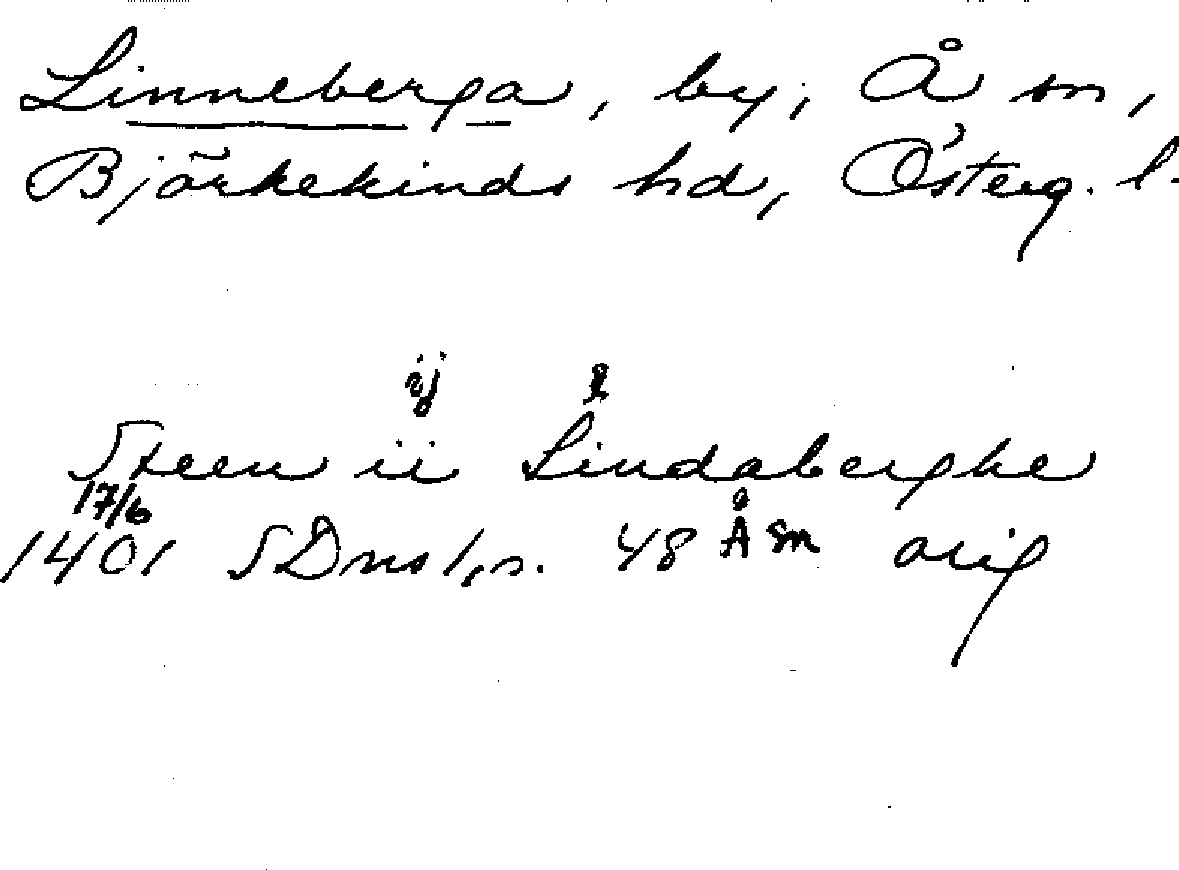 Linneberga, by, Å sn,
Björkekinds hd, Österg. l.
ij l
Steen ii Lindaberghe
17/6
1401 SDns 1, s. 48 Å sn orig